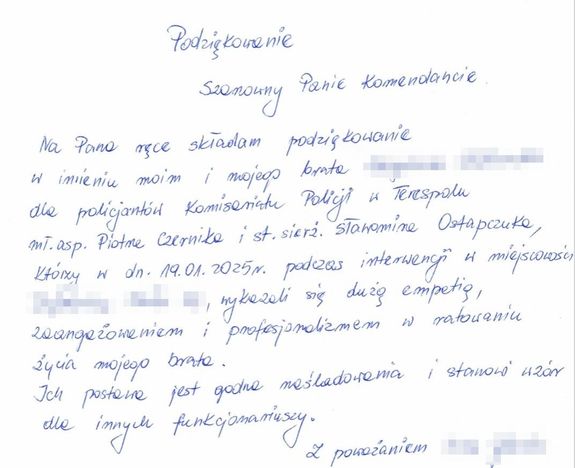 Podziękowanie
Szanowny Panie Komendancie.
Na Pana ręce składam podziękowanie
w imieniu moim i mojego brata
dla policjantów Komisariatu Policji w Terespolu
mł.asp. Piotra Czernika i st.sierż. Sławomira Ostapczuka,
którzy w dn. 19.01.2025r. podczas interwencji w miejscowości
, wykazali się dużą empatią,
zaangażowaniem i profesjonalizmem w ratowaniu
życia mojego brata.
Ich postawa jest godna naśladowania i stanowi wzór
dla innych funkcjonariuszy.
Z poważaniem